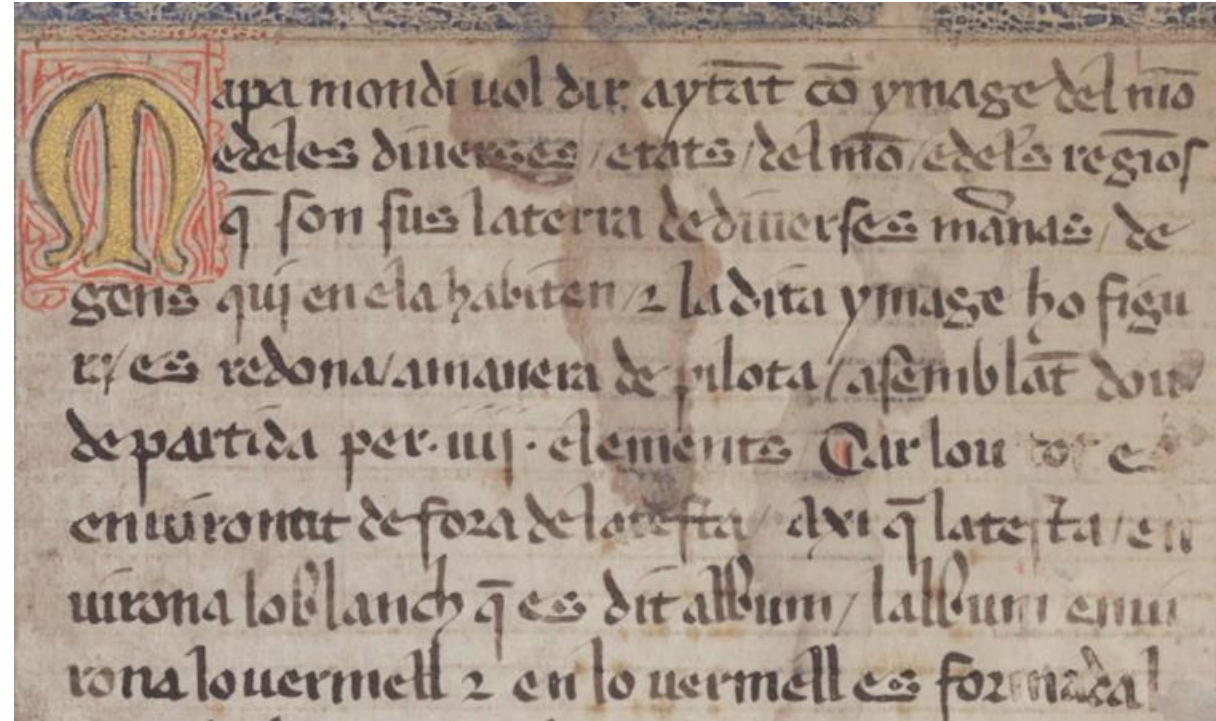 Mapa mondi uol dir aytāt cō ymage del mō
edeles diuerses / etats / del mō / edel's regiōs
q̄ son sus laterra dediuerses māñas / de
gens qui en ela habiten / ⁊ ladita ymage ho figu
r / es redona / amanera de pilota / asemblāt dou
departida per · iiij · elements Car lou tot es
enuironat defora delatesta / axi q̄ latesta / en
uirona loblanch q̄ es dit album / lalbum enui
rona louermell ⁊ en lo uermell es